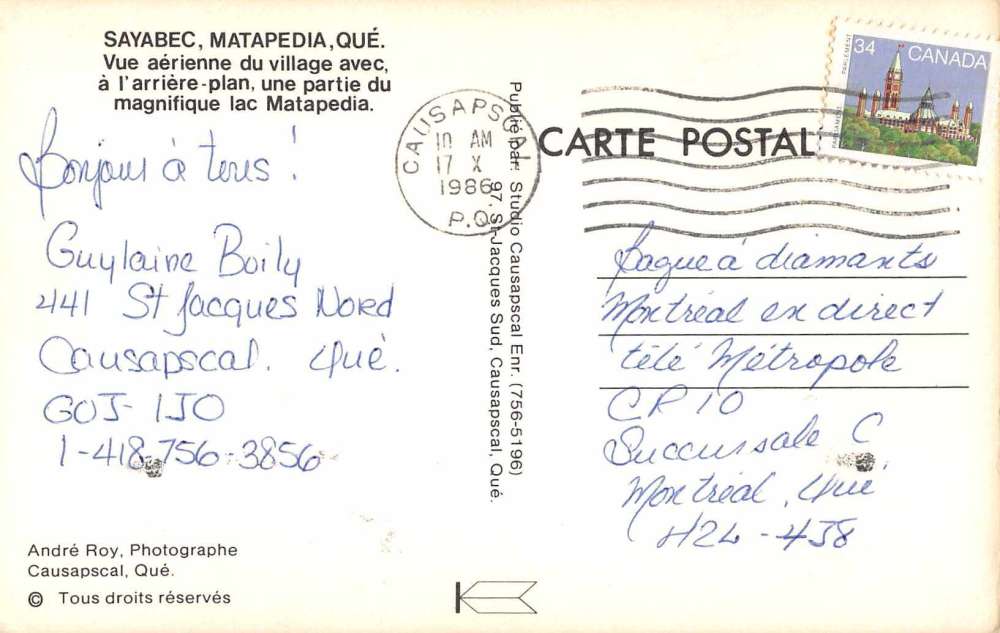 SAYABEC, MATAPEDIA, QUÉ.
Vue aérienne du village avec,
à l'arrière-plan, une partie du
magnifique lac Matapedia.
Bonjour à tous !
Guylaine Boily
441 St Jacques Nord
Causapscal. Qué.
G0J-1J0
1-418-756-3856
André Roy, Photographe
Causapscal, Qué.
© Tous droits réservés
CAUSAPSCAL
10 AM
17 X
1986
P.Q.
Publié par: Studio Causapscal Enr. (756-5196)
97, St-Jacques Sud, Causapscal, Qué.
CARTE POSTAL
PARLEMENT
PARLIAMENT
34
CANADA
Bague à diamants
Montréal en direct
télé Métropole
CP 10
Succursale C
Montréal, Qué
H2L-4J8